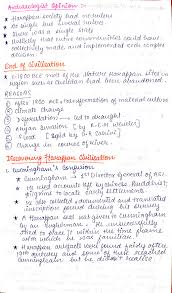 Archaeologist Opinion :-
• Harappan society had no rulers
• no single but several rulers
• there was a single state
• unlikely that entire communities could have
collectively made and implemented such complex
decisions
End of Civilisation
by c.1800 BCE most of the Mature Harappan sites in
regions such as Cholistan had been abandoned.
REASONS
① after 1900 BCE → transformation of material culture
② climatic change
③ deforestation → led to drought
④ Aryan invasion [by R.E.M. Wheeler]
⑤ flood
⑥ change in course of river.
Discovering Harappan Civilisation
1. Cunningham's Confusion
• Cunningham → 1st Director General of ASI
• he used accounts left by Chinese Buddhist
pilgrims to locate early settlements
• he also collected, documented and translated
inscriptions found during his survey
• A Harappan seal was given to Cunningham
by an Englishman. He unsuccessfully
tried to place it within the time frame
with which he was familiar
• Harappan artefacts were found fairly often in
19th century and some of these reached
Cunningham but he didn't realise